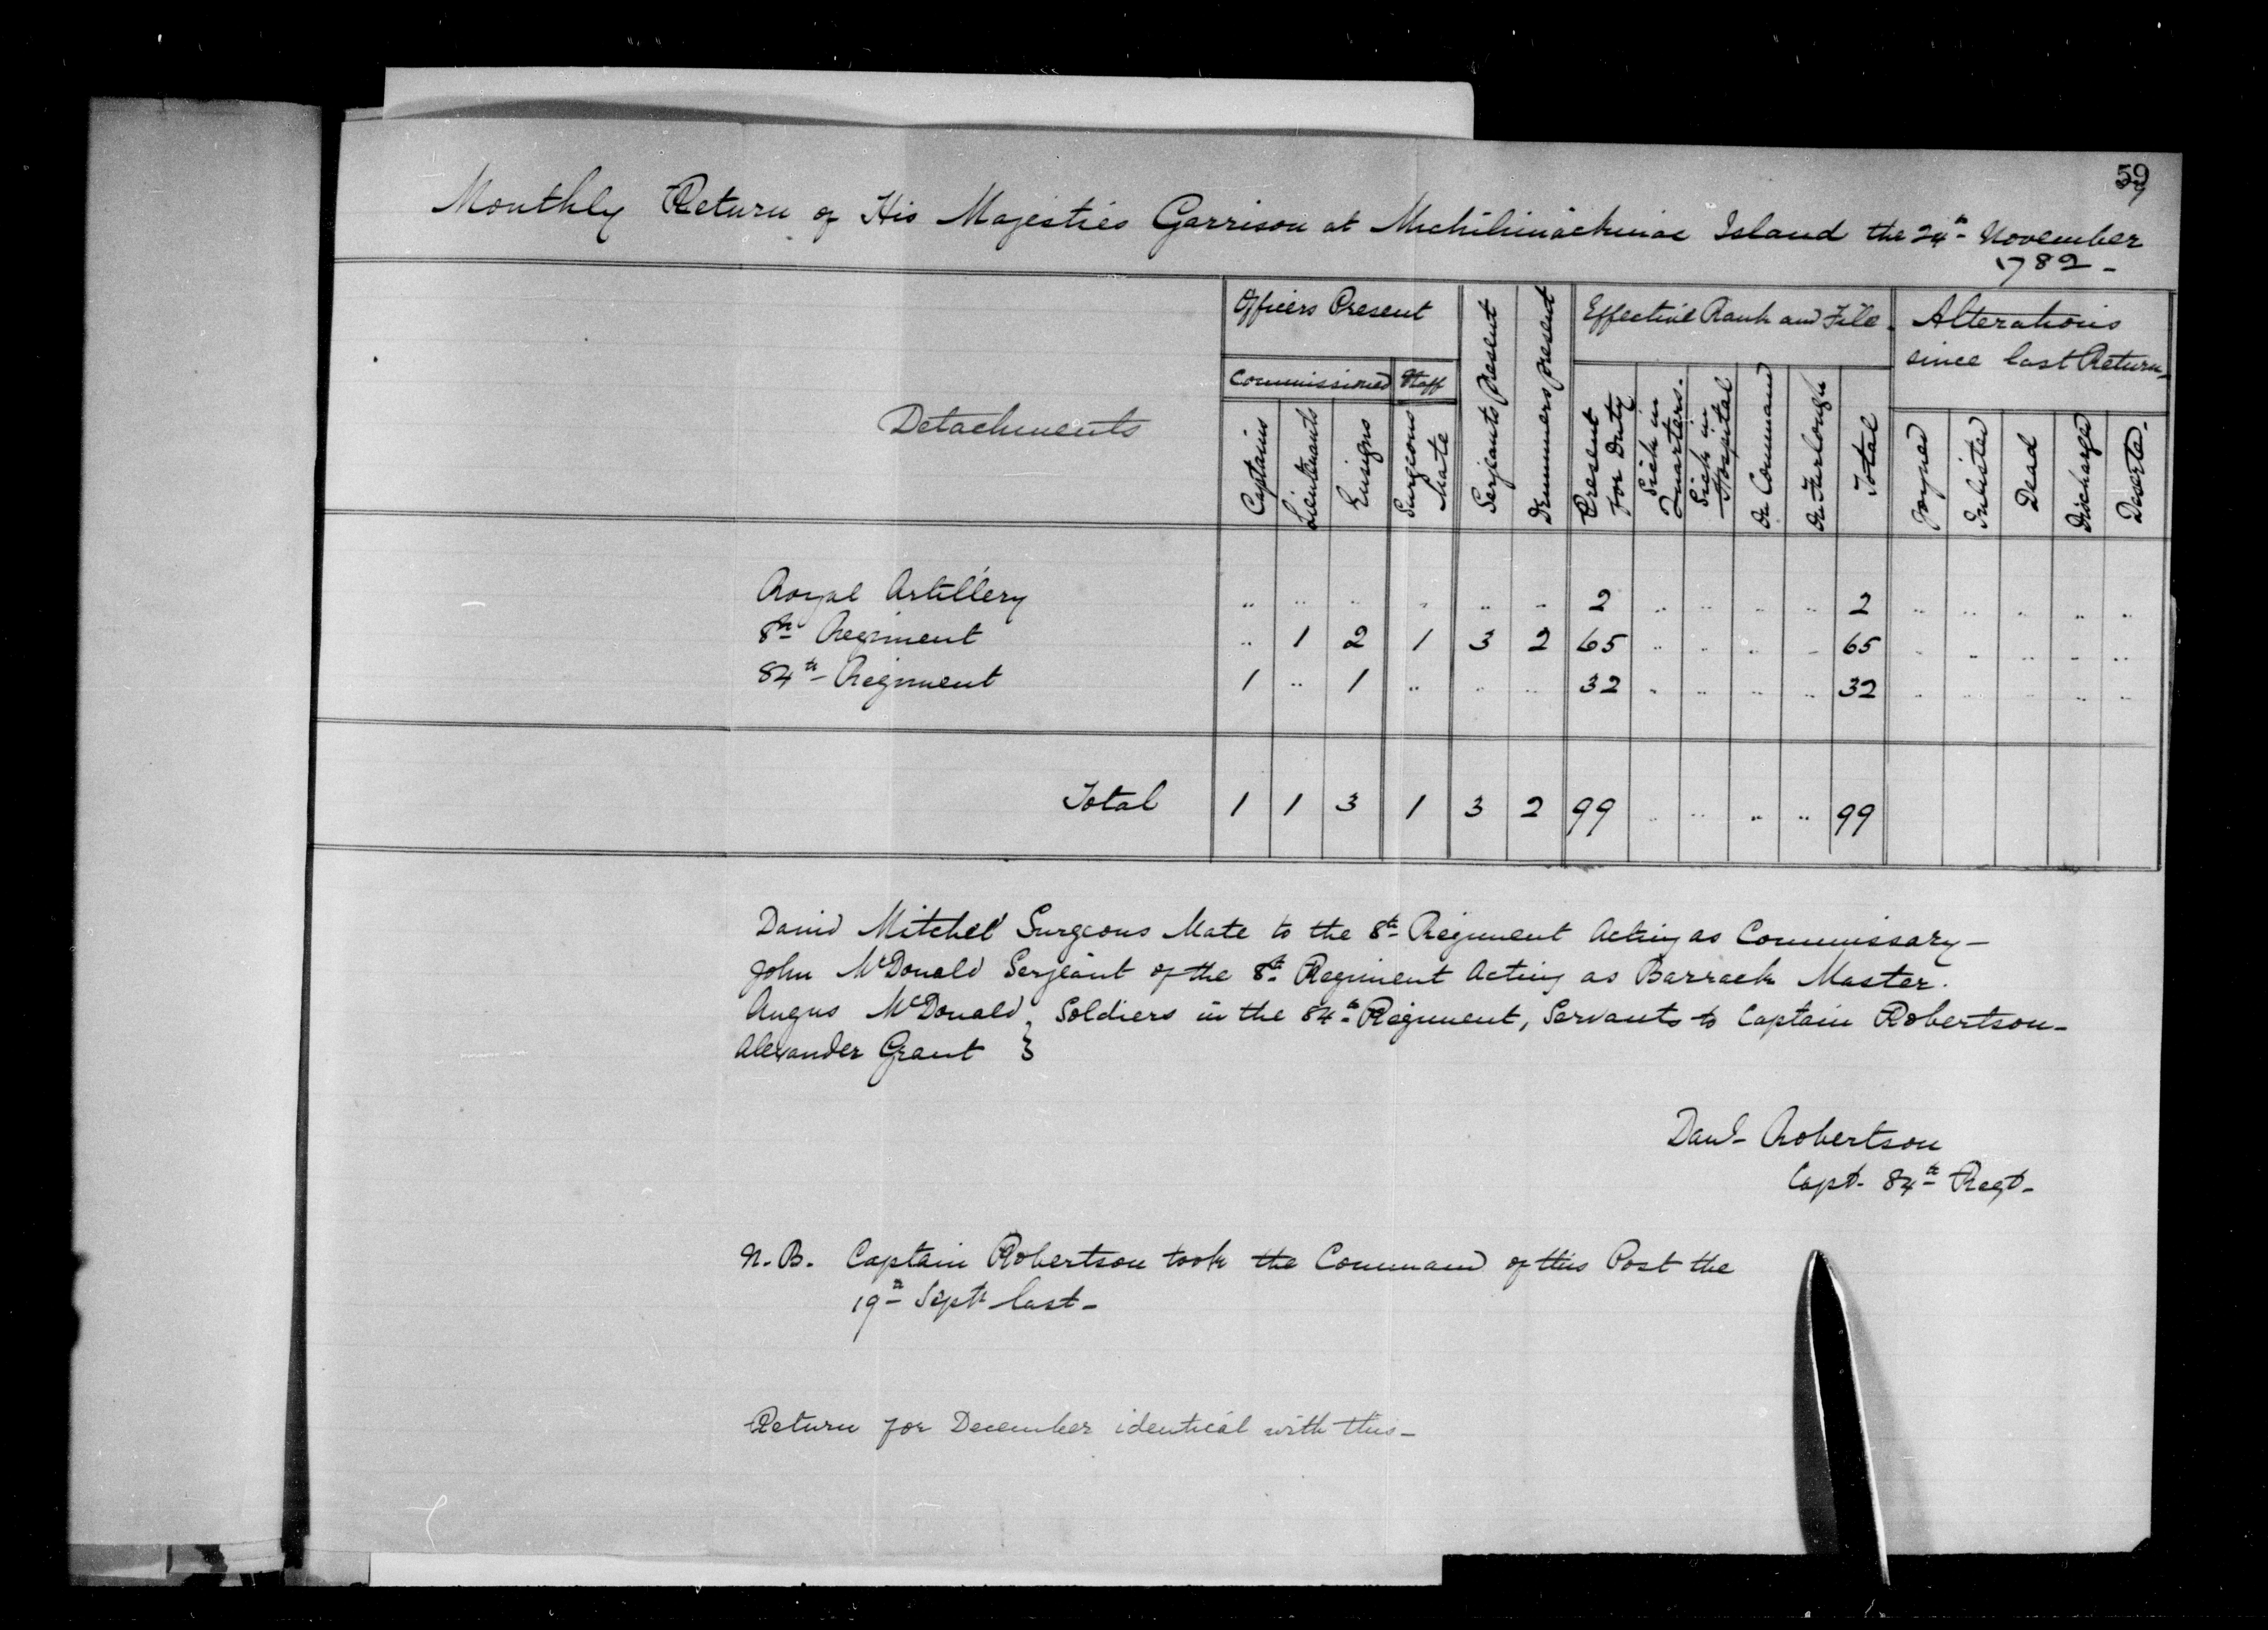 59
Monthly Return of His Majesties Garrison at Michilimackinac Island the 24th November
1782 -
Detachments
Officers Present
Commissioned
Staff
Captains
Lieutenants
Ensigns
Surgeons Mate
Serjeants present
Drummers present
Effective Rank and File
Present for Duty
Sick in Quarters.
Sick in Hospital
On Command
On Furlough
Total
Alterations
since last Return
Joyned
Inlisted
Dead
Discharged
Deserted
Royal Artillery .. .. .. .. .. .. 2 .. .. .. .. 2 .. .. .. .. ..
8th Regiment .. 1 2 1 3 2 65 .. .. .. .. 65 .. .. .. .. ..
84th Regiment 1 .. 1 .. .. .. 32 .. .. .. .. 32 .. .. .. .. ..
Total 1 1 3 1 3 2 99 .. .. .. .. 99
David Mitchel Surgeons Mate to the 8th Regiment Acting as Commissary -
John McDonald Serjeant of the 8th Regiment Acting as Barrack Master.
Angus McDonald } Soldiers in the 84th Regiment, Servants to Captain Robertson -
Alexander Grant }
Danl Robertson
Capt. 84th Regt -
N.B. Captain Robertson took the Command of this Post the
19th Septr last -
Return for December identical with this -